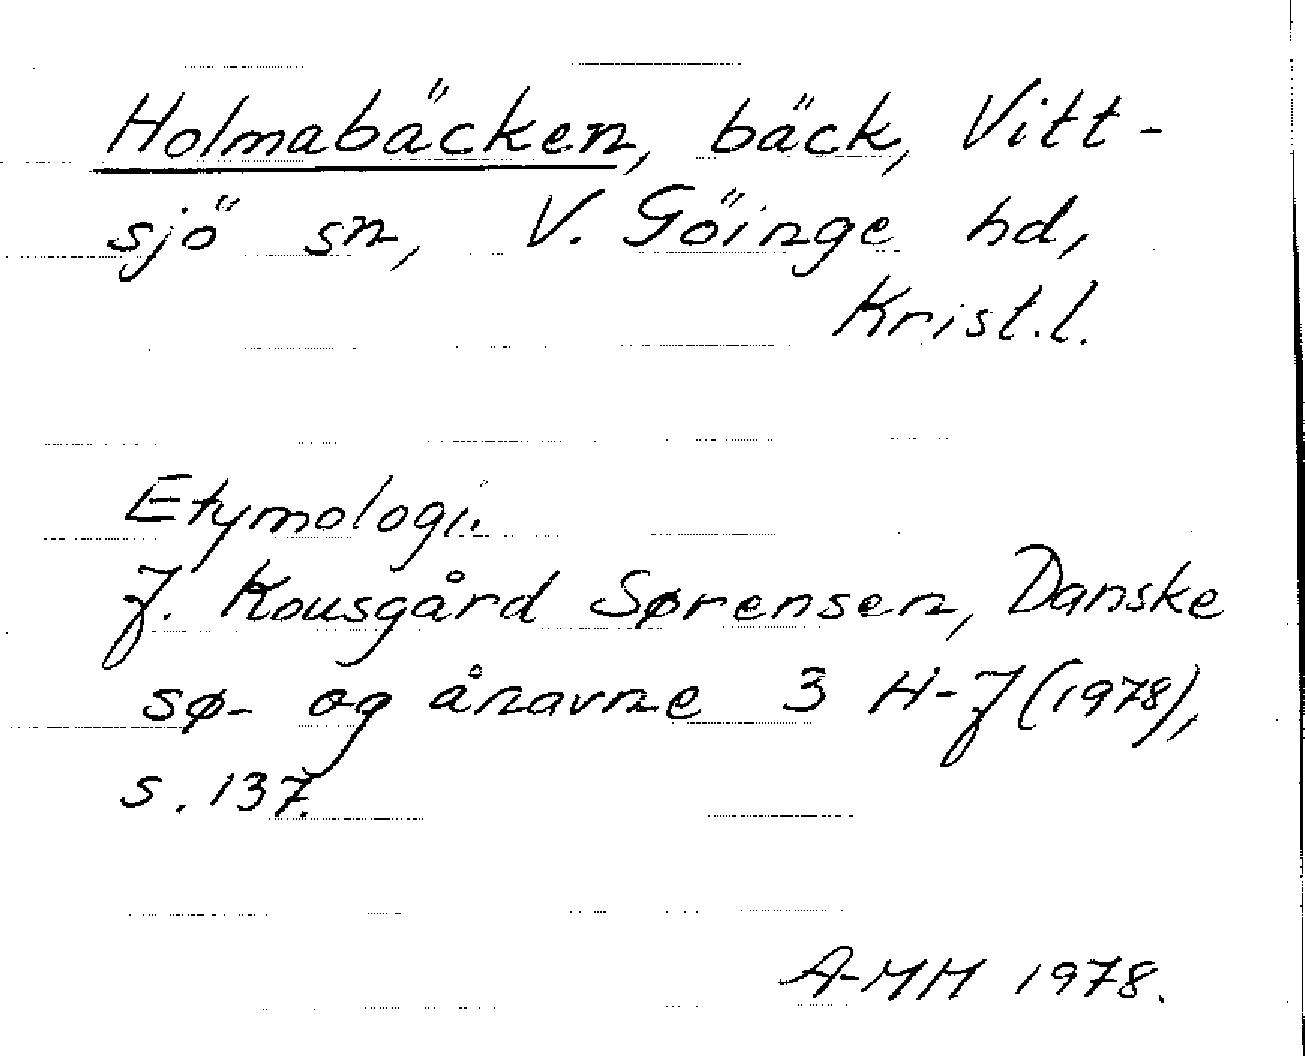 Holmabäcken, bäck, Vitt-
sjö sn, V. Göinge hd,
Krist.l.
Etymologi.
J. Kousgård Sørensen, Danske
sø- og ånavne 3 H-J (1978),
s. 137.
A-MH 1978.